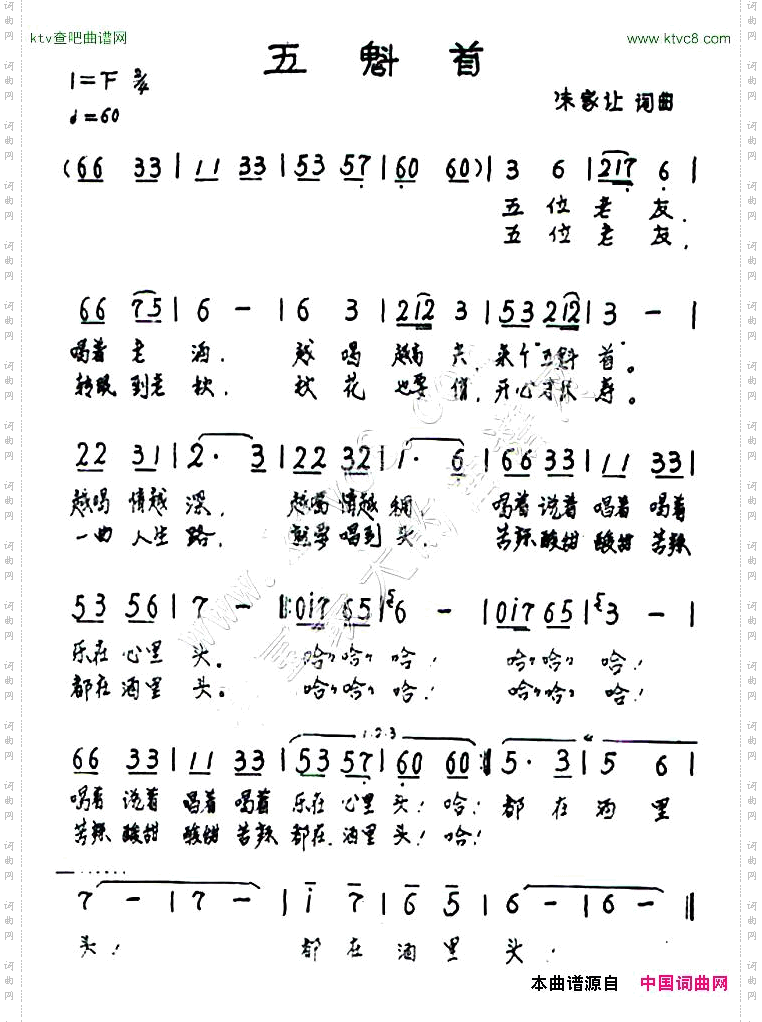 ktv查吧曲谱网
www.ktvc8.com
五魁首
1=F 2/4
♩=60
朱家让 词曲
(66 33 | 11 33 | 53 57 | 60 60) | 3 6 | 217 6 |
五位老友,
五位老友,
66 75 | 6 - | 6 3 | 212 3 | 53 212 | 3 - |
喝着老酒, 越喝越 来个"五魁首"。
转眼到老秋, 秋花也要俏, 开心 寿。
22 31 | 2· 3 | 22 32 | 1· 6 | 66 33 | 11 33 |
越喝情越深, 越喝情越稠, 喝着说着唱着喝着
一曲人生路, 就要唱到头, 苦辣酸甜酸甜苦辣
53 56 | 7 - |: 0i7 65 | 6 - | 0i7 65 | 3 - |
乐在心里头。 哈哈哈! 哈哈哈!
都在酒里头。 哈哈哈! 哈哈哈!
1.2.3
66 33 | 11 33 | 53 57 | 60 60 :| 5· 3 | 5 6 |
喝着说着唱着喝着乐在心里头!哈! 都在酒里
苦辣酸甜酸甜苦辣都在酒里头!哈!
7 - | 7 - | i 7 | 6 5 | 6 - | 6 - ||
头! 都在酒里头!
本曲谱源自 中国词曲网